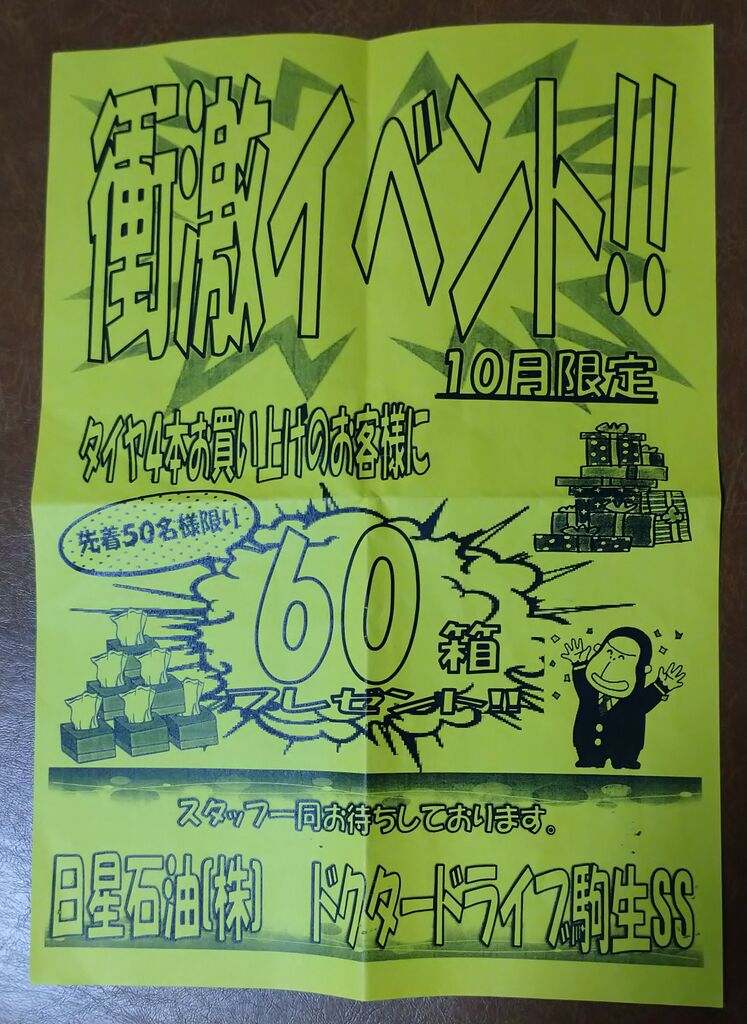 衝激イベント!!
10月限定
タイヤ4本お買い上げのお客様に
先着50名様限り
60箱
プレゼント!!
スタッフ一同お待ちしております。
日星石油(株) ドクタードライブ駒生SS